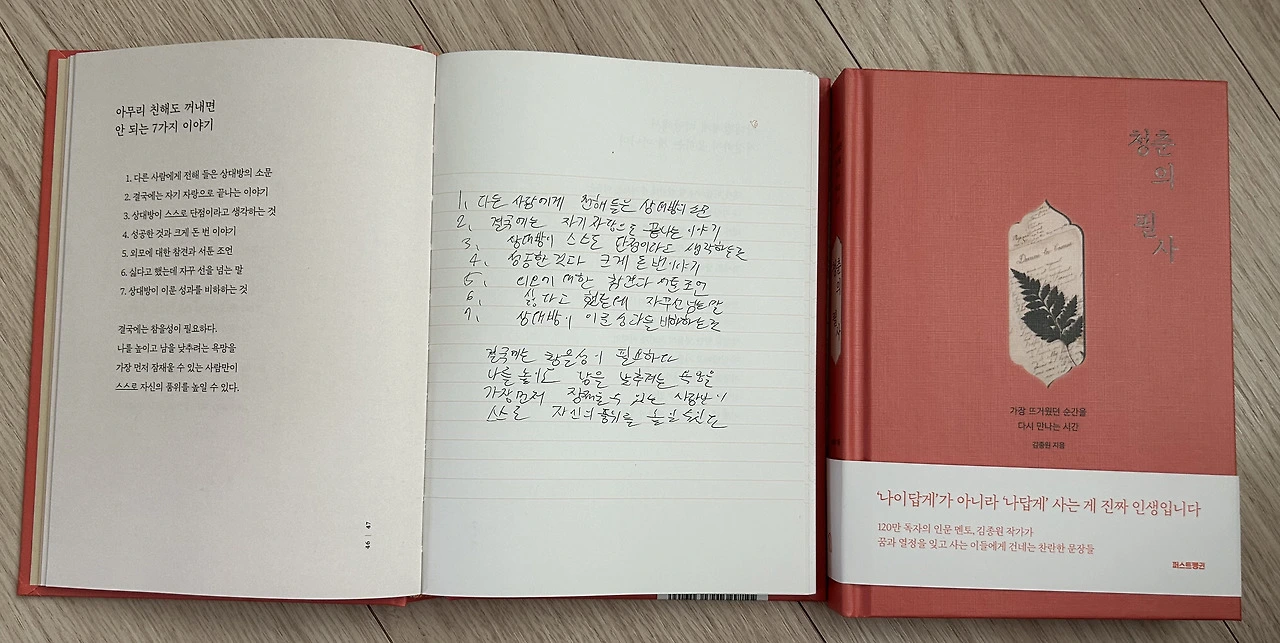 아무리 친해도 꺼내면
안 되는 7가지 이야기
1. 다른 사람에게 전해 들은 상대방의 소문
2. 결국에는 자기 자랑으로 끝나는 이야기
3. 상대방이 스스로 단점이라고 생각하는 것
4. 성공한 것과 크게 돈 번 이야기
5. 외모에 대한 참견과 서툰 조언
6. 싫다고 했는데 자꾸 선을 넘는 말
7. 상대방이 이룬 성과를 비하하는 것
결국에는 참을성이 필요하다.
나를 높이고 남을 낮추려는 욕망을
가장 먼저 잠재울 수 있는 사람만이
스스로 자신의 품위를 높일 수 있다.
46 | 47
1. 다른 사람에게 전해 들은 상대방의 소문
2. 결국에는 자기 자랑으로 끝나는 이야기
3. 상대방이 스스로 단점이라고 생각하는 것
4. 성공한 것과 크게 돈 번 이야기
5. 외모에 대한 참견과 서툰 조언
6. 싫다고 했는데 자꾸 선 넘는 말
7. 상대방이 이룬 성과를 비하하는 것
결국에는 참을성이 필요하다
나를 높이고 남을 낮추려는 욕망을
가장 먼저 잠재울 수 있는 사람만이
스스로 자신의 품위를 높일 수 있다
청춘의
필사
가장 뜨거웠던 순간을
다시 만나는 시간
김종원 지음
‘나이답게’가 아니라 ‘나답게’ 사는 게 진짜 인생입니다
120만 독자의 인문 멘토, 김종원 작가가
꿈과 열정을 잊고 사는 이들에게 건네는 찬란한 문장들
퍼스트펭귄